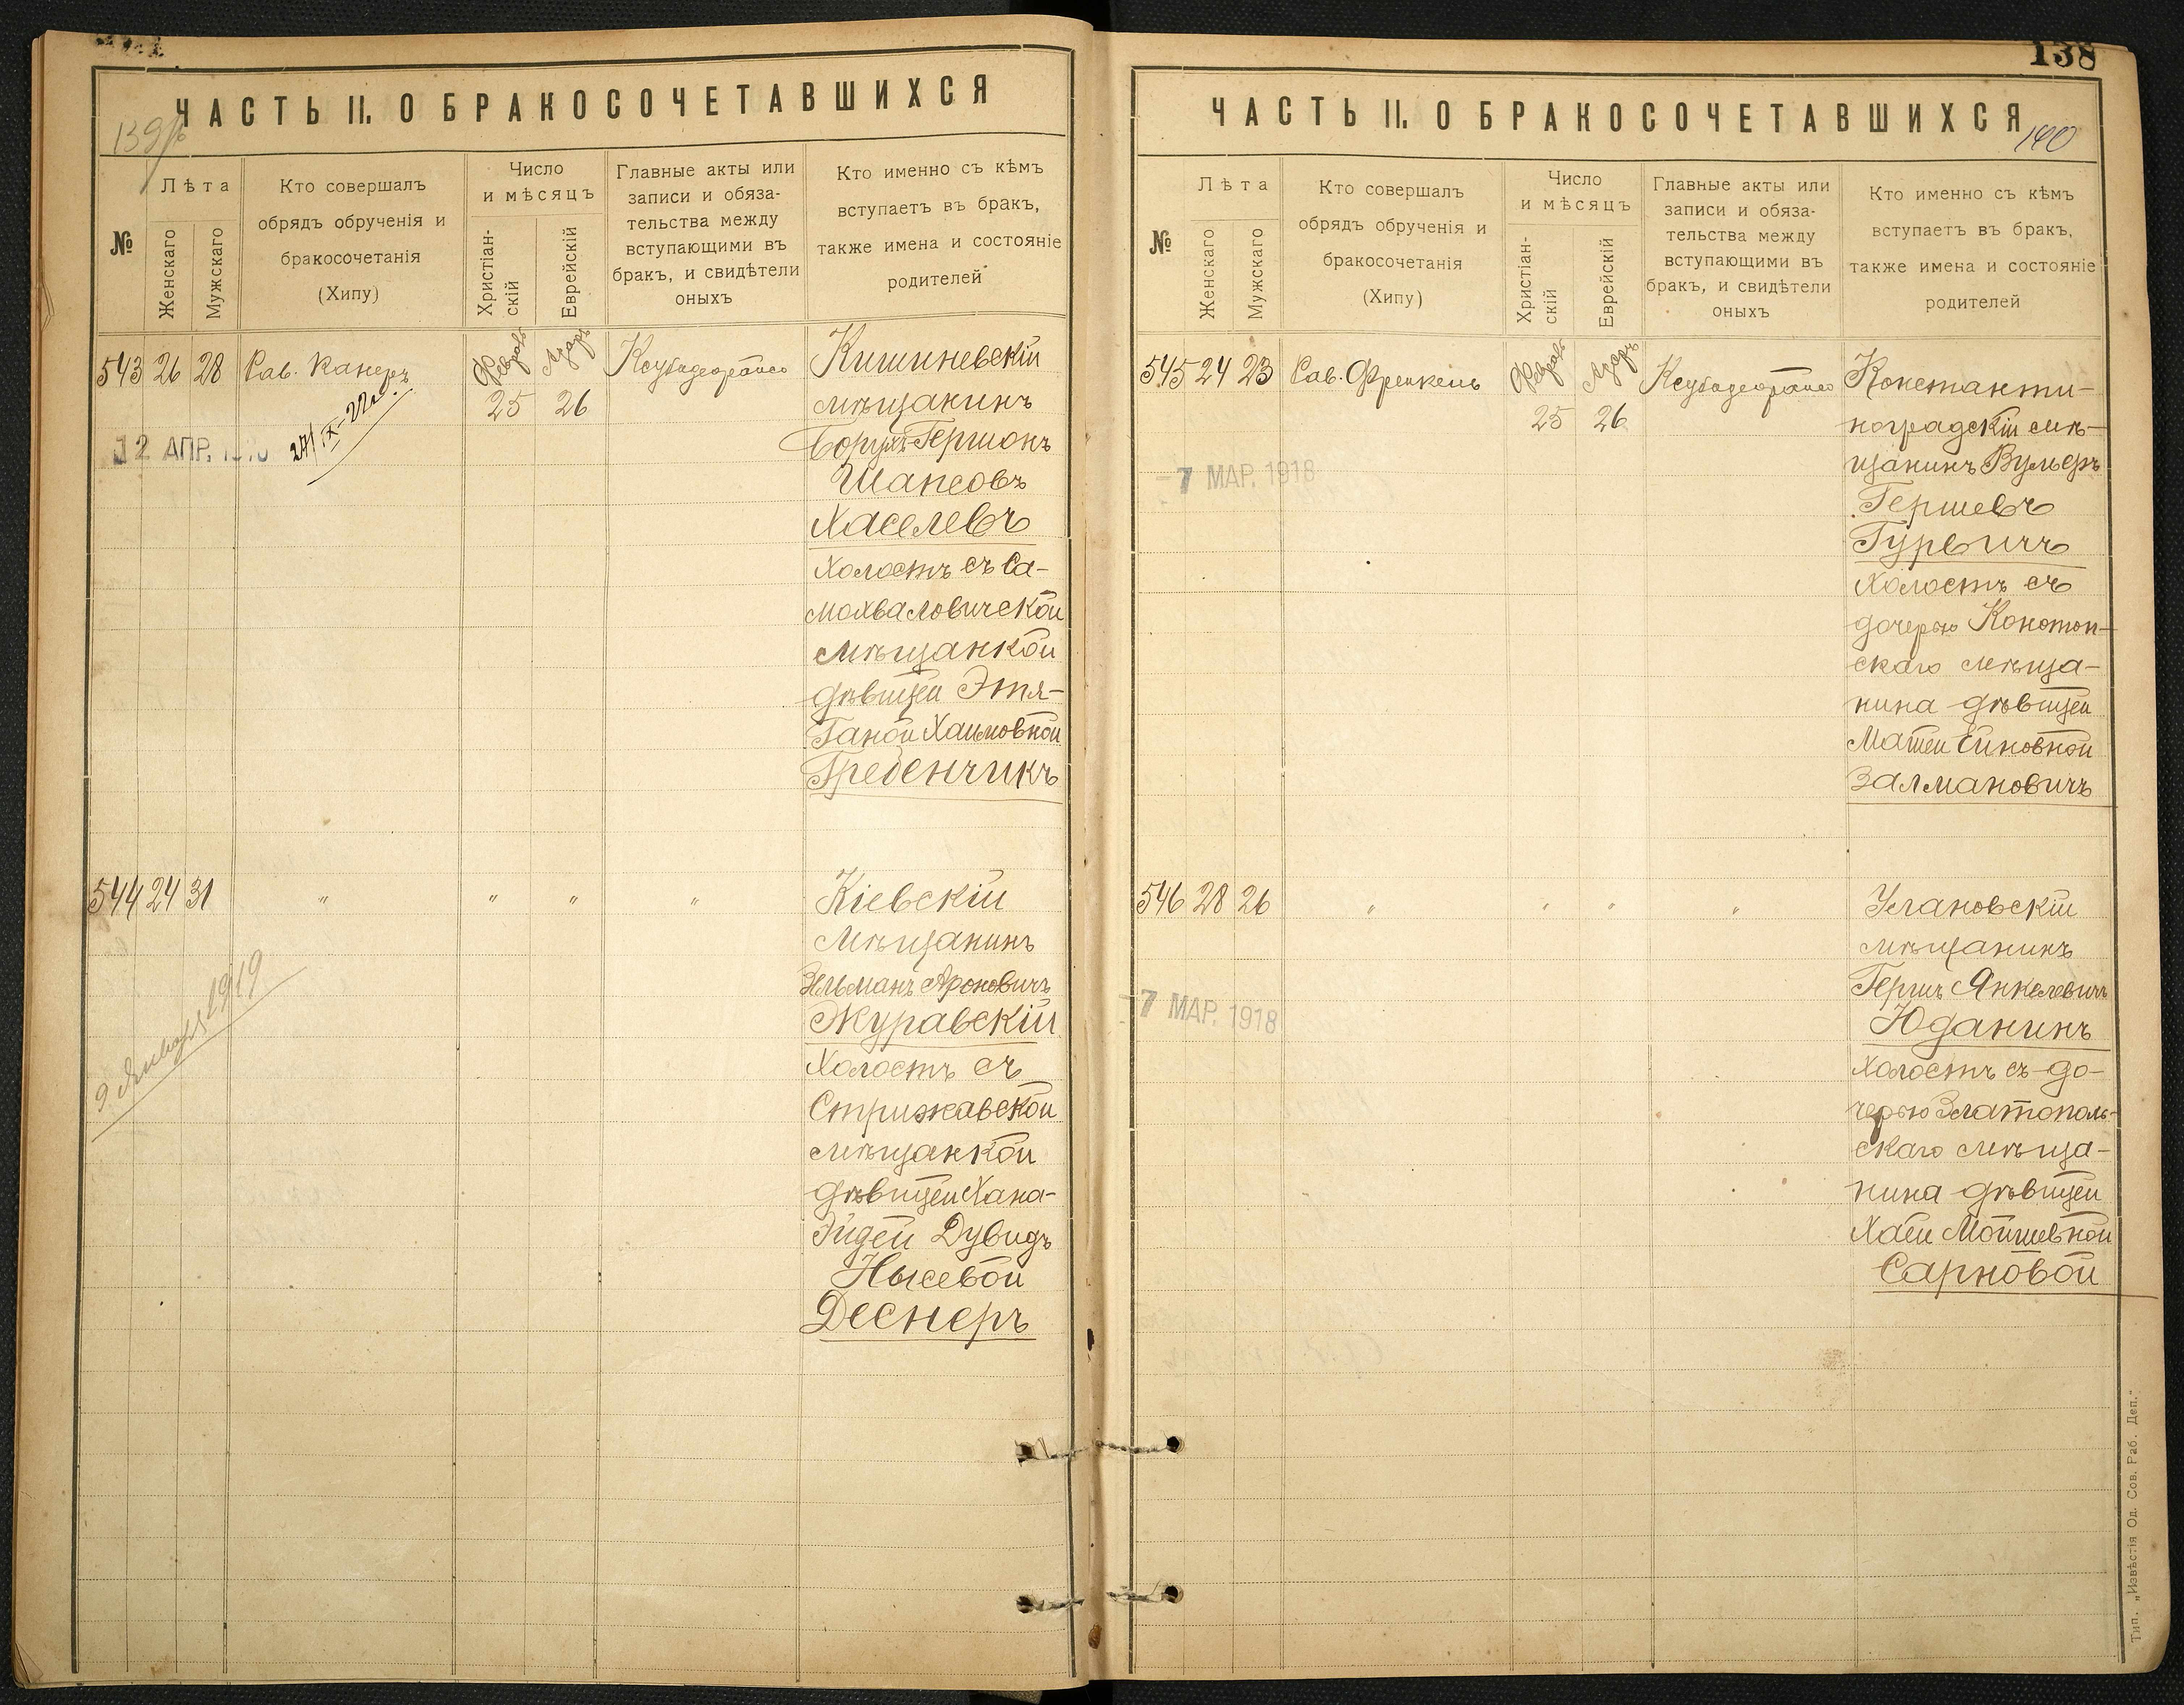 ЧАСТЬ II. О БРАКОСОЧЕТАВШИХСЯ
139
№
Лѣта
Женскаго
Мужскаго
Кто совершалъ
обрядъ обрученія и
бракосочетанія
(Хипу)
Число
и мѣсяцъ
Христіан-
скій
Еврейскій
Главные акты или
записи и обяза-
тельства между
вступающими въ
бракъ, и свидѣтели
оныхъ
Кто именно съ кѣмъ
вступаетъ въ бракъ,
также имена и состояніе
родителей
543 26 28 Рав. Канеръ
Февраль
25
Адаръ
26
12 АПР.
27/IX-22г.
Кишиневскій
мѣщанинъ
Борухъ-Гершонъ
Шапсовъ
Хаселевъ
холостъ съ Са-
мохваловичской
мѣщанкой
дѣвицей Этя-
Ганой Хаимовной
Гребенчикъ
544 24 31 " " " "
9 Января 1919
Кіевскій
мѣщанинъ
Зельманъ Ароновичъ
Журавскій
холостъ съ
Стрижавской
мѣщанкой
дѣвицей Хана-
Эйдей Дувидъ
Нысевой
Деснеръ
138
ЧАСТЬ II. О БРАКОСОЧЕТАВШИХСЯ
140
№
Лѣта
Женскаго
Мужскаго
Кто совершалъ
обрядъ обрученія и
бракосочетанія
(Хипу)
Число
и мѣсяцъ
Христіан-
скій
Еврейскій
Главные акты или
записи и обяза-
тельства между
вступающими въ
бракъ, и свидѣтели
оныхъ
Кто именно съ кѣмъ
вступаетъ въ бракъ,
также имена и состояніе
родителей
545 24 23 Рав. Френкель
Февраль
25
Адаръ
26
-7 МАР. 1918
Константи-
ноградскій мѣ-
щанинъ Вульфъ
Гершевъ
Гурвичъ
холостъ съ
дочерью Конотоп-
скаго мѣща-
нина дѣвицей
Матлей
Залмановичъ
546 28 26 " " " "
-7 МАР. 1918
Улановскій
мѣщанинъ
Гершъ Янкелевичъ
Юданинъ
холостъ съ до-
черью Златополь-
скаго мѣща-
нина дѣвицей
Хаей Мойшевной
Сарновой
Тип. „Извѣстія Од. Сов. Раб. Деп."